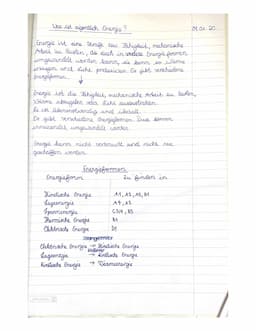 Was ist eigentlich Energie?
Energie ist eine Fähigkeit, mechanische
Arbeit zu leisten, die auch in andere Energieformen
umgewandelt werden kann, sie kann so Wärme
erzeugen und Licht produzieren. Es gibt verschiedene
Energieformen.
Energie ist die Fähigkeit, mechanische Arbeit zu leisten,
Wärme abzugeben oder Licht auszustrahlen.
Es ist lebensnotwendig und überall.
Es gibt verschiedene Energieformen. Diese können
ineinander umgewandelt werden.
Energie kann nicht verbraucht und nicht neu
geschaffen werden.
Energieformen
Energieform Zu finden in
Kinetische Energie
Lageenergie
Spannenergie
Thermische Energie B1
Elektrische Energie
Elektrische Energie → Kinetische Energie
Lageenergie → kinetische Energie
kinetische Energie →